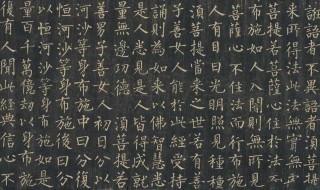 誑語者不異語者須菩提
来所得法此法無實無
菩提若菩薩心住於法
布施如人入闇則無所見
菩薩心不住法而行布施
人有目日光明照見種種
須菩提當来之世若有善
子善女人能於此經受持
誦則為如来以佛智慧悉
是人悉見是人皆得成就
量無邊功德 須菩提若
善男子善女人初日分以
河沙等身布施中日分復
恒河沙等身布施後日分
以恒河沙等身布施如是
量百千萬億劫以身布施
復有人聞此經典信心不